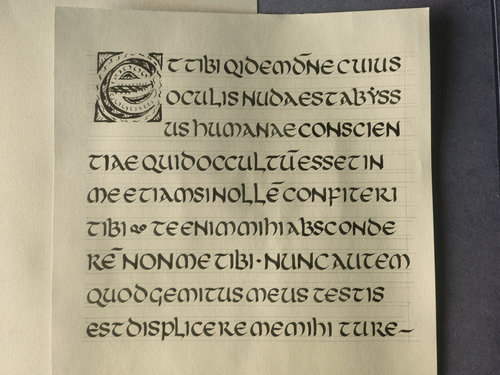 ET TIBI QIDEM DÑE CUIUS
OCULIS NUDA EST ABYSS
US hUMANAE CONSCIEN
TIAE QUID OCCULTŪ ESSET IN
ME ETIAMSI NOLLĒ CONFITERI
TIBI TE ENIM MIHI ABSCONDE
RĒ NON ME TIBI · NUNC AUTEM
QUOD GEMITUS MEUS TESTIS
EST DISPLICERE ME MIHI TU RE–